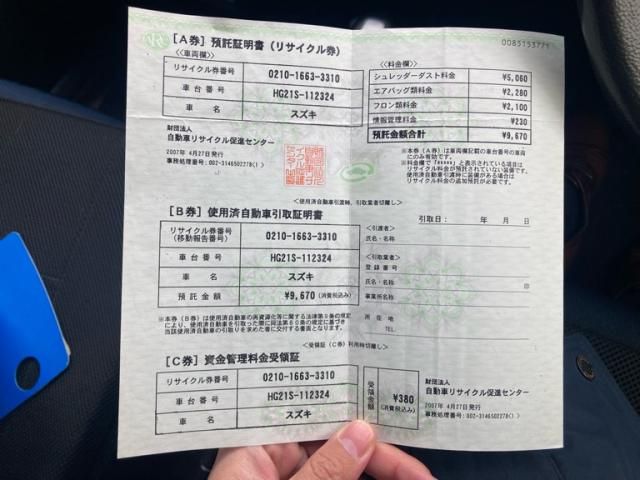 0085153771
[A券] 預託証明書 (リサイクル券)
<<車両欄>>
リサイクル券番号 0210-1663-3310
車台番号 HG21S-112324
車 名 スズキ
財団法人
自動車リサイクル促進センター
2007年 4月27日発行
事務処理番号:002-3146502278(1)
<<料金欄>>
シュレッダーダスト料金 ¥5,060
エアバッグ類料金 ¥2,280
フロン類料金 ¥2,100
情報管理料金 ¥230
預託金額合計 ¥9,670
※本券(A券)は車両欄記載の車台番号の車両
にのみ有効です。
※料金欄で「*****」と表示されている項目は
リサイクル料金が預託されていない装備です。
使用済自動車引渡時に装備がある場合は
リサイクル料金の追加預託が必要です。
<使用済自動車引渡時、引取業者切離し>
[B券] 使用済自動車引取証明書
引取日: 年 月 日
リサイクル券番号
(移動報告番号) 0210-1663-3310
車台番号 HG21S-112324
車 名 スズキ
預託金額 ¥9,670 (消費税込み)
※本券(B券)は使用済自動車の再資源化等に関する法律第80条の規定
により、使用済自動車を引取った際に同法第80条の規定に基づき
当該使用済自動車の引取りを求めた者に交付する書面となります。
<引渡者>
氏名・名称
<引取業者>
登録番号
氏名・名称 印
事業所名称
所在地
TEL.
<受領証(C券)利用時切離し>
[C券] 資金管理料金受領証
リサイクル券番号 0210-1663-3310
車台番号 HG21S-112324
車 名 スズキ
受領金額 ¥380
(消費税込み)
財団法人
自動車リサイクル促進センター
2007年 4月27日発行
事務処理番号:002-3146502278(1)